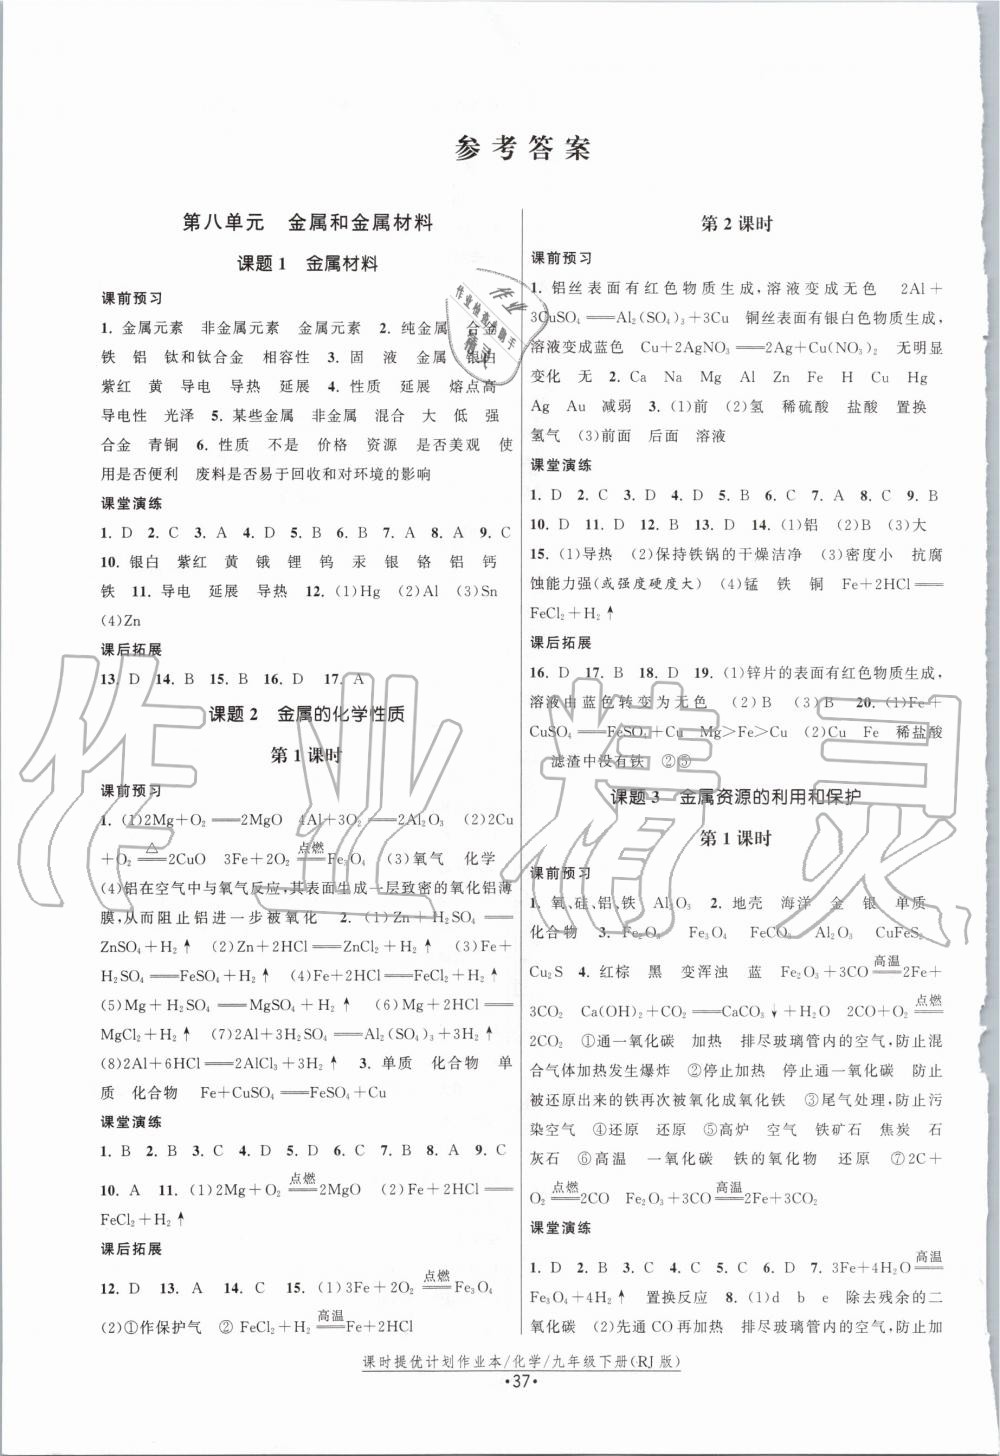 参考答案
第八单元 金属和金属材料
课题1 金属材料
课前预习
1. 金属元素 非金属元素 金属元素 2. 纯金属 合金
铁 铝 钛和钛合金 相容性 3. 固 液 金属 银白
紫红 黄 导电 导热 延展 4. 性质 延展 熔点高
导电性 光泽 5. 某些金属 非金属 混合 大 低 强
合金 青铜 6. 性质 不是 价格 资源 是否美观 使
用是否便利 废料是否易于回收和对环境的影响
课堂演练
1. D 2. C 3. A 4. D 5. B 6. B 7. A 8. A 9. C
10. 银白 紫红 黄 锇 锂 钨 汞 银 铬 铝 钙
铁 11. 导电 延展 导热 12. (1)Hg (2)Al (3)Sn
(4)Zn
课后拓展
13. D 14. B 15. B 16. D 17. A
课题2 金属的化学性质
第1课时
课前预习
1. (1)2Mg+O₂══2MgO 4Al+3O₂══2Al₂O₃ (2)2Cu
+O₂═△═2CuO 3Fe+2O₂═点燃═Fe₃O₄ (3)氧气 化学
(4)铝在空气中与氧气反应,其表面生成一层致密的氧化铝薄
膜,从而阻止铝进一步被氧化 2. (1)Zn+H₂SO₄══
ZnSO₄+H₂↑ (2)Zn+2HCl══ZnCl₂+H₂↑ (3)Fe+
H₂SO₄══FeSO₄+H₂↑ (4)Fe+2HCl══FeCl₂+H₂↑
(5)Mg+H₂SO₄══MgSO₄+H₂↑ (6)Mg+2HCl══
MgCl₂+H₂↑ (7)2Al+3H₂SO₄══Al₂(SO₄)₃+3H₂↑
(8)2Al+6HCl══2AlCl₃+3H₂↑ 3. 单质 化合物 单
质 化合物 Fe+CuSO₄══FeSO₄+Cu
课堂演练
1. B 2. B 3. C 4. D 5. D 6. C 7. B 8. A 9. C
10. A 11. (1)2Mg+O₂═点燃═2MgO (2)Fe+2HCl══
FeCl₂+H₂↑
课后拓展
12. D 13. A 14. C 15. (1)3Fe+2O₂═点燃═Fe₃O₄
(2)①作保护气 ②FeCl₂+H₂═高温═Fe+2HCl
第2课时
课前预习
1. 铝丝表面有红色物质生成,溶液变成无色 2Al+
3CuSO₄══Al₂(SO₄)₃+3Cu 铜丝表面有银白色物质生成,
溶液变成蓝色 Cu+2AgNO₃══2Ag+Cu(NO₃)₂ 无明显
变化 无 2. Ca Na Mg Al Zn Fe H Cu Hg
Ag Au 减弱 3. (1)前 (2)氢 稀硫酸 盐酸 置换
氢气 (3)前面 后面 溶液
课堂演练
1. D 2. C 3. C 4. A 5. B 6. C 7. A 8. C 9. B
10. D 11. D 12. B 13. D 14. (1)铝 (2)B (3)大
15. (1)导热 (2)保持铁锅的干燥洁净 (3)密度小 抗腐
蚀能力强(或强度硬度大) (4)锰 铁 铜 Fe+2HCl══
FeCl₂+H₂↑
课后拓展
16. D 17. B 18. D 19. (1)锌片的表面有红色物质生成,
溶液由蓝色转变为无色 (2)B (3)B 20. (1)Fe+
CuSO₄══FeSO₄+Cu Mg>Fe>Cu (2)Cu Fe 稀盐酸
滤渣中没有铁 ②⑤
课题3 金属资源的利用和保护
第1课时
课前预习
1. 氧、硅、铝、铁 Al₂O₃ 2. 地壳 海洋 金 银 单质
化合物 3. Fe₂O₃ Fe₃O₄ FeCO₃ Al₂O₃ CuFeS₂
Cu₂S 4. 红棕 黑 变浑浊 蓝 Fe₂O₃+3CO═高温═2Fe+
3CO₂ Ca(OH)₂+CO₂══CaCO₃↓+H₂O 2CO+O₂═点燃═
2CO₂ ①通一氧化碳 加热 排尽玻璃管内的空气,防止混
合气体加热发生爆炸 ②停止加热 停止通一氧化碳 防止
被还原出来的铁再次被氧化成氧化铁 ③尾气处理,防止污
染空气 ④还原 还原 ⑤高炉 空气 铁矿石 焦炭 石
灰石 ⑥高温 一氧化碳 铁的氧化物 还原 ⑦2C+
O₂═点燃═2CO Fe₂O₃+3CO═高温═2Fe+3CO₂
课堂演练
1. D 2. B 3. C 4. C 5. C 6. D 7. 3Fe+4H₂O═高温═
Fe₃O₄+4H₂↑ 置换反应 8. (1)d b e 除去残余的二
氧化碳 (2)先通CO再加热 排尽玻璃管内的空气,防止加
课时提优计划作业本/化学/九年级下册(RJ版)
·37·
作业精灵
作业
作业检查小助手
精灵